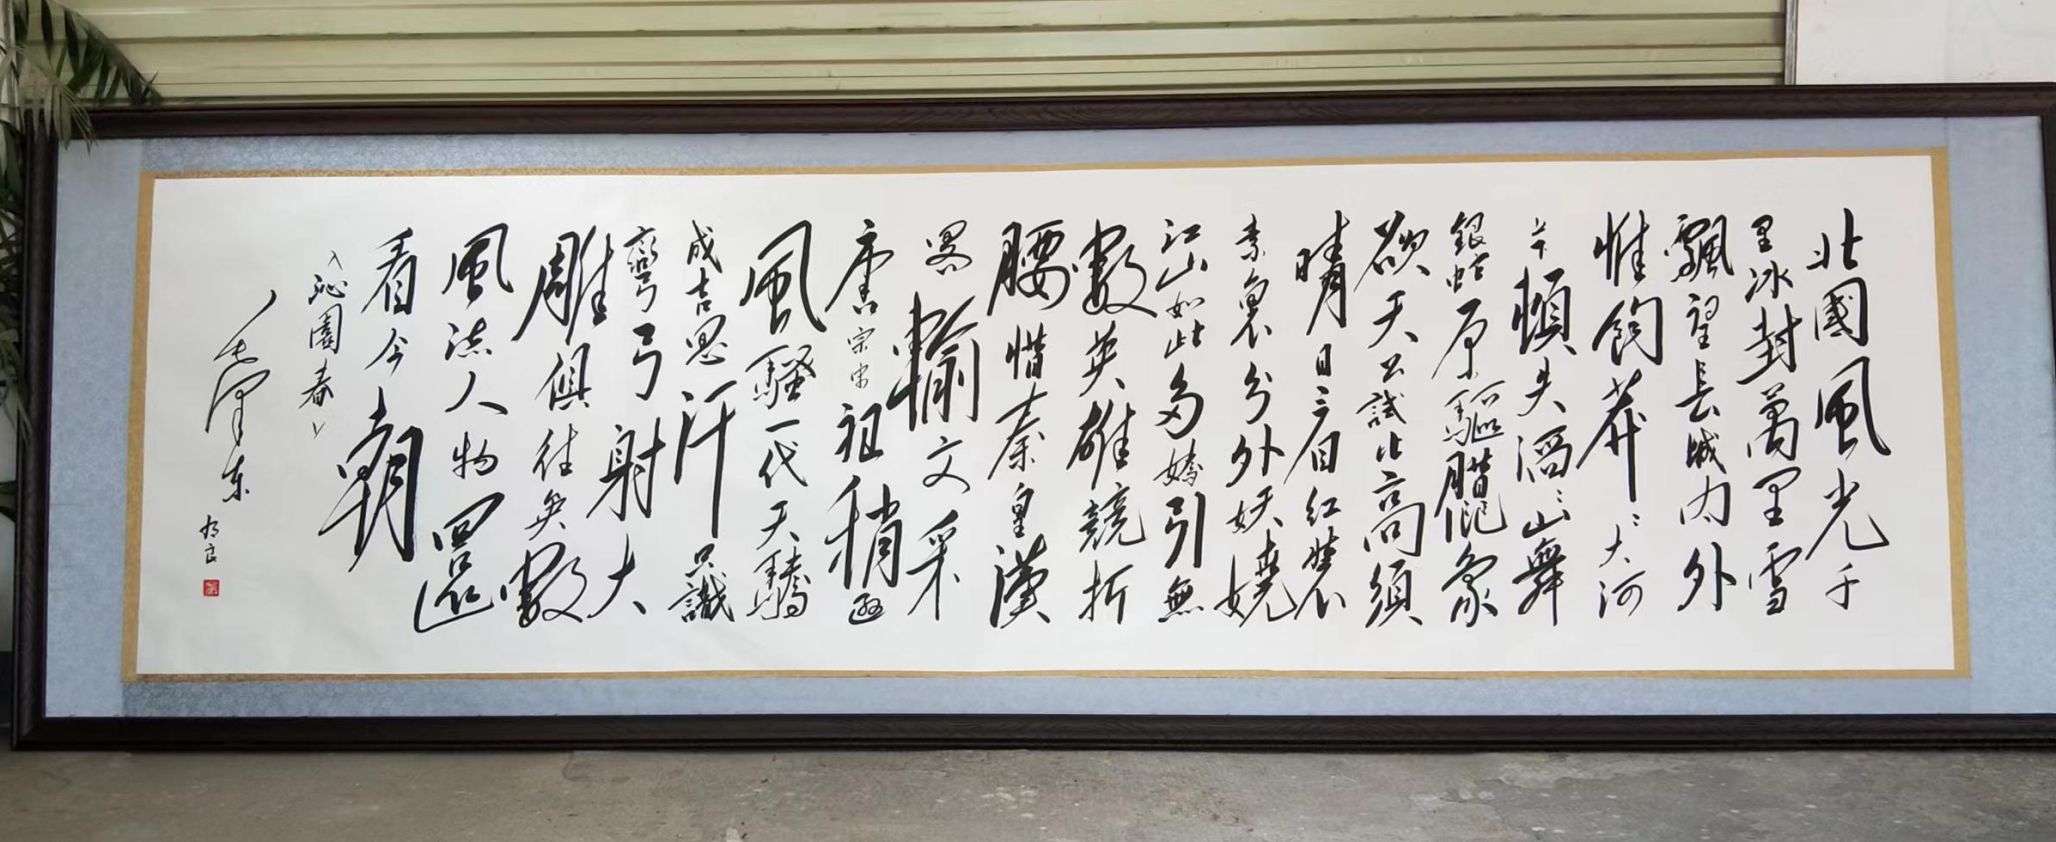 北國風光千
里冰封萬里雪
飄望長城内外
惟餘莽〻大河
上下頓失滔〻山舞
銀蛇原驅腊像
欲天公試比高須
晴日看紅裝
素裹分外妖嬈
江山如此多嬌引無
數英雄競折
腰惜秦皇漢
略輸文采
唐宗宋祖稍遜
風騷一代天驕
成吉思汗只識
彎弓射大
雕俱往矣數
風流人物還
看今朝
《沁園春》
毛澤东